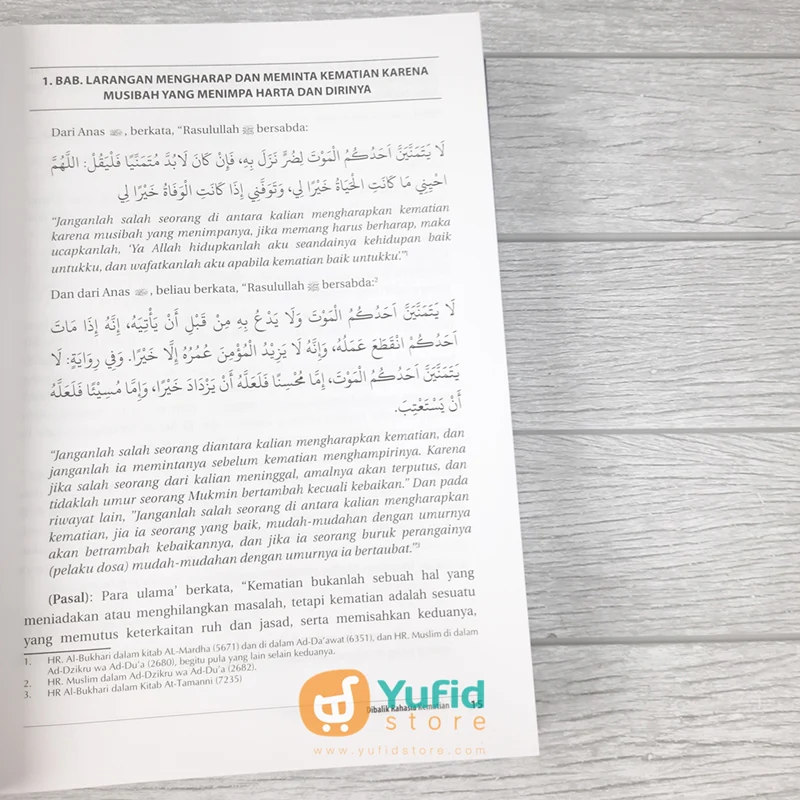 1. BAB. LARANGAN MENGHARAP DAN MEMINTA KEMATIAN KARENA
MUSIBAH YANG MENIMPA HARTA DAN DIRINYA
Dari Anas , berkata, “Rasulullah ﷺ bersabda:
لَا يَتَمَنَّيَنَّ اَحَدُكُمُ الْمَوْتَ لِضُرٍّ نَزَلَ بِهِ، فَإِنْ كَانَ لَابُدَّ مُتَمَنِّيًا فَلْيَقُلْ: اللَّهُمَّ
احْيِنِي مَا كَانَتِ الْحَيَاةُ خَيْرًا لِي، وَتَوَفَّنِي إِذَا كَانَتِ الْوَفَاةُ خَيْرًا لِي
“Janganlah salah seorang di antara kalian mengharapkan kematian
karena musibah yang menimpanya, jika memang harus berharap, maka
ucapkanlah, ‘Ya Allah hidupkanlah aku seandainya kehidupan baik
untukku, dan wafatkanlah aku apabila kematian baik untukku’.”¹
Dan dari Anas , beliau berkata, “Rasulullah ﷺ bersabda:²
لَا يَتَمَنَّيَنَّ اَحَدُكُمُ الْمَوْتَ وَلَا يَدْعُ بِهِ مِنْ قَبْلِ أَنْ يَأْتِيَهُ، إِنَّهُ إِذَا مَاتَ
اَحَدُكُمْ انْقَطَعَ عَمَلُهُ، وَإِنَّهُ لَا يَزِيْدُ الْمُؤْمِنَ عُمُرُهُ إِلَّا خَيْرًا. وَفِي رِوَايَةٍ: لَا
يَتَمَنَّيَنَّ اَحَدُكُمُ الْمَوْتَ، إِمَّا مُحْسِنًا فَلَعَلَّهُ أَنْ يَزْدَادَ خَيْرًا، وَإِمَّا مُسِيْئًا فَلَعَلَّهُ
أَنْ يَسْتَعْتِبَ.
“Janganlah salah seorang diantara kalian mengharapkan kematian, dan
janganlah ia memintanya sebelum kematian menghampirinya. Karena
jika salah seorang dari kalian meninggal, amalnya akan terputus, dan
tidaklah umur seorang Mukmin bertambah kecuali kebaikan.” Dan pada
riwayat lain, “Janganlah salah seorang di antara kalian mengharapkan
kematian, jia ia seorang yang baik, mudah-mudahan dengan umurnya
akan betrambah kebaikannya, dan jika ia seorang buruk perangainya
(pelaku dosa) mudah-mudahan dengan umurnya ia bertaubat.”³
(Pasal): Para ulama’ berkata, “Kematian bukanlah sebuah hal yang
meniadakan atau menghilangkan masalah, tetapi kematian adalah sesuatu
yang memutus keterkaitan ruh dan jasad, serta memisahkan keduanya,
1. HR. Al-Bukhari dalam kitab AL-Mardha (5671) dan di dalam Ad-Da’awat (6351), dan HR. Muslim di dalam
Ad-Dzikru wa Ad-Du’a (2680), begitu pula yang lain selain keduanya.
2. HR. Muslim dalam Ad-Dzikru wa Ad-Du’a (2682).
3. HR Al-Bukhari dalam Kitab At-Tamanni (7235)
Dibalik Rahasia Kematian 15
Yufid
store
www.yufidstore.com